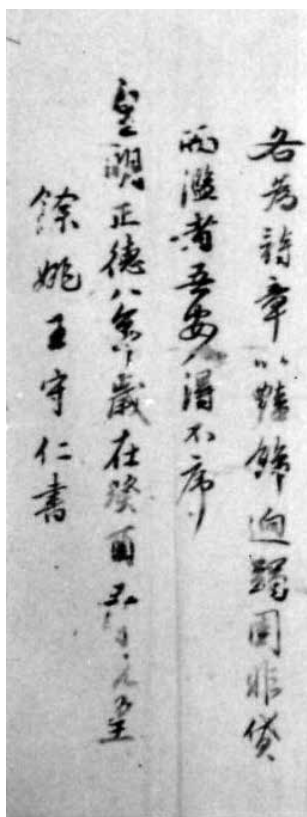 各為詩章以艷飾迥躅固非貸
而濫者吾安得不序
皇明正德八年歲在癸酉五月既望
餘姚王守仁書